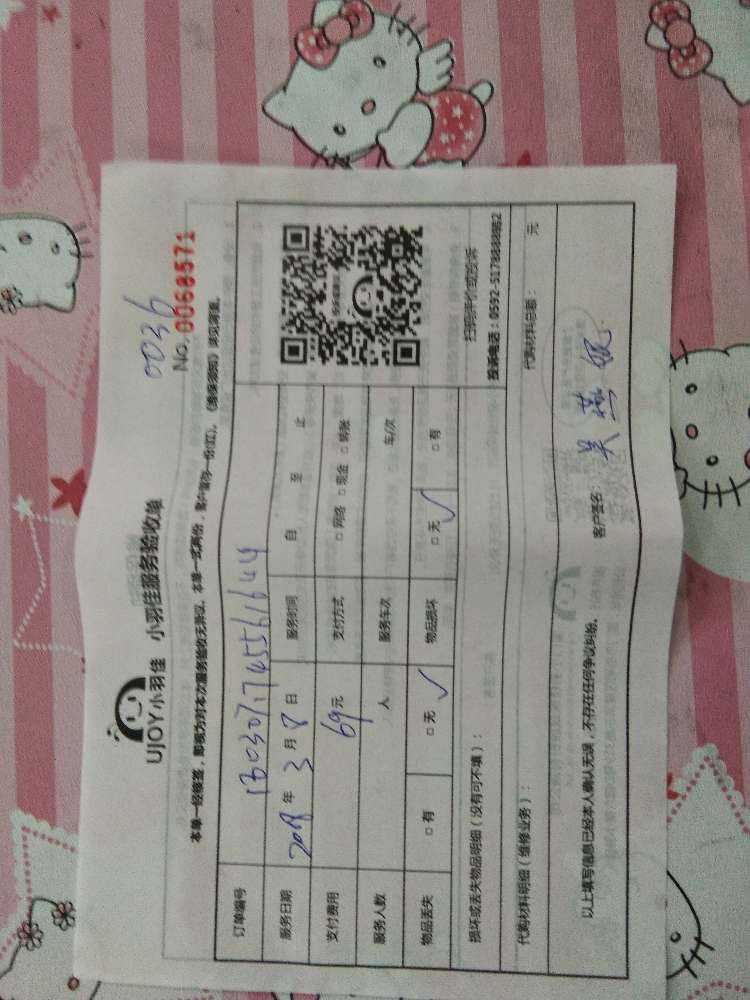 0036
UJOY小羽佳 小羽佳服务验收单
No. 0068571
本单一经修签，即视为对本次服务验收无异议。本单一式两份，客户留存一份(红)。《维保须知》详见背面。
订单编号
服务日期 2018 年 3 月 8 日 服务时间 自 至 止
支付费用 69元 支付方式 □ 网络 □ 现金 □ 转账
服务人数 人 服务车次 车/次
物品丢失 □ 有 □ 无 ✓ 物品损坏 □ 无 ✓ □ 有
扫码评价或投诉
损坏或丢失物品明细（没有可不填）：
代购材料明细（维修业务）： 代购材料总额： 元
以上填写信息已经本人确认无误，不存在任何争议纠纷。 客户签名： 吴燕